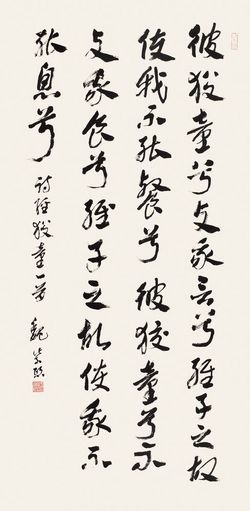 彼狡童兮与我言兮維子之故
使我不能餐兮彼狡童兮不
与我食兮維子之故使我不
能息兮
詩經狡童一首
魏紫熙